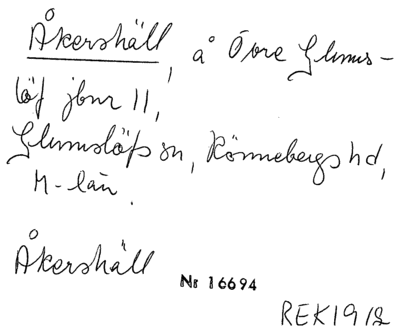 Åkershäll, å Övre Glums-
löf jbnr 11,
Glumslöfs sn, Rönnebergs hd,
M-län.
Åkershäll
Nr 16694
REK1912